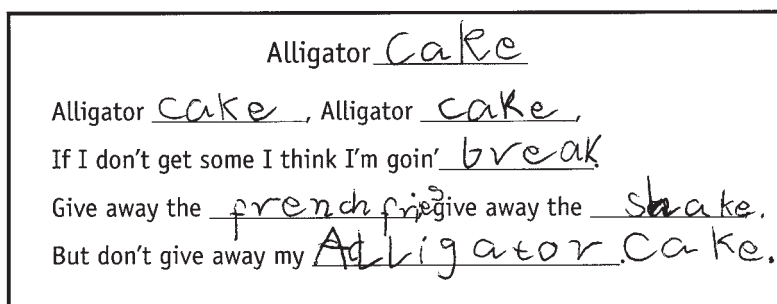 Alligator Cake
Alligator cake, Alligator cake,
If I don't get some I think I'm goin' break.
Give away the french fries give away the shake.
But don't give away my Alligator Cake.